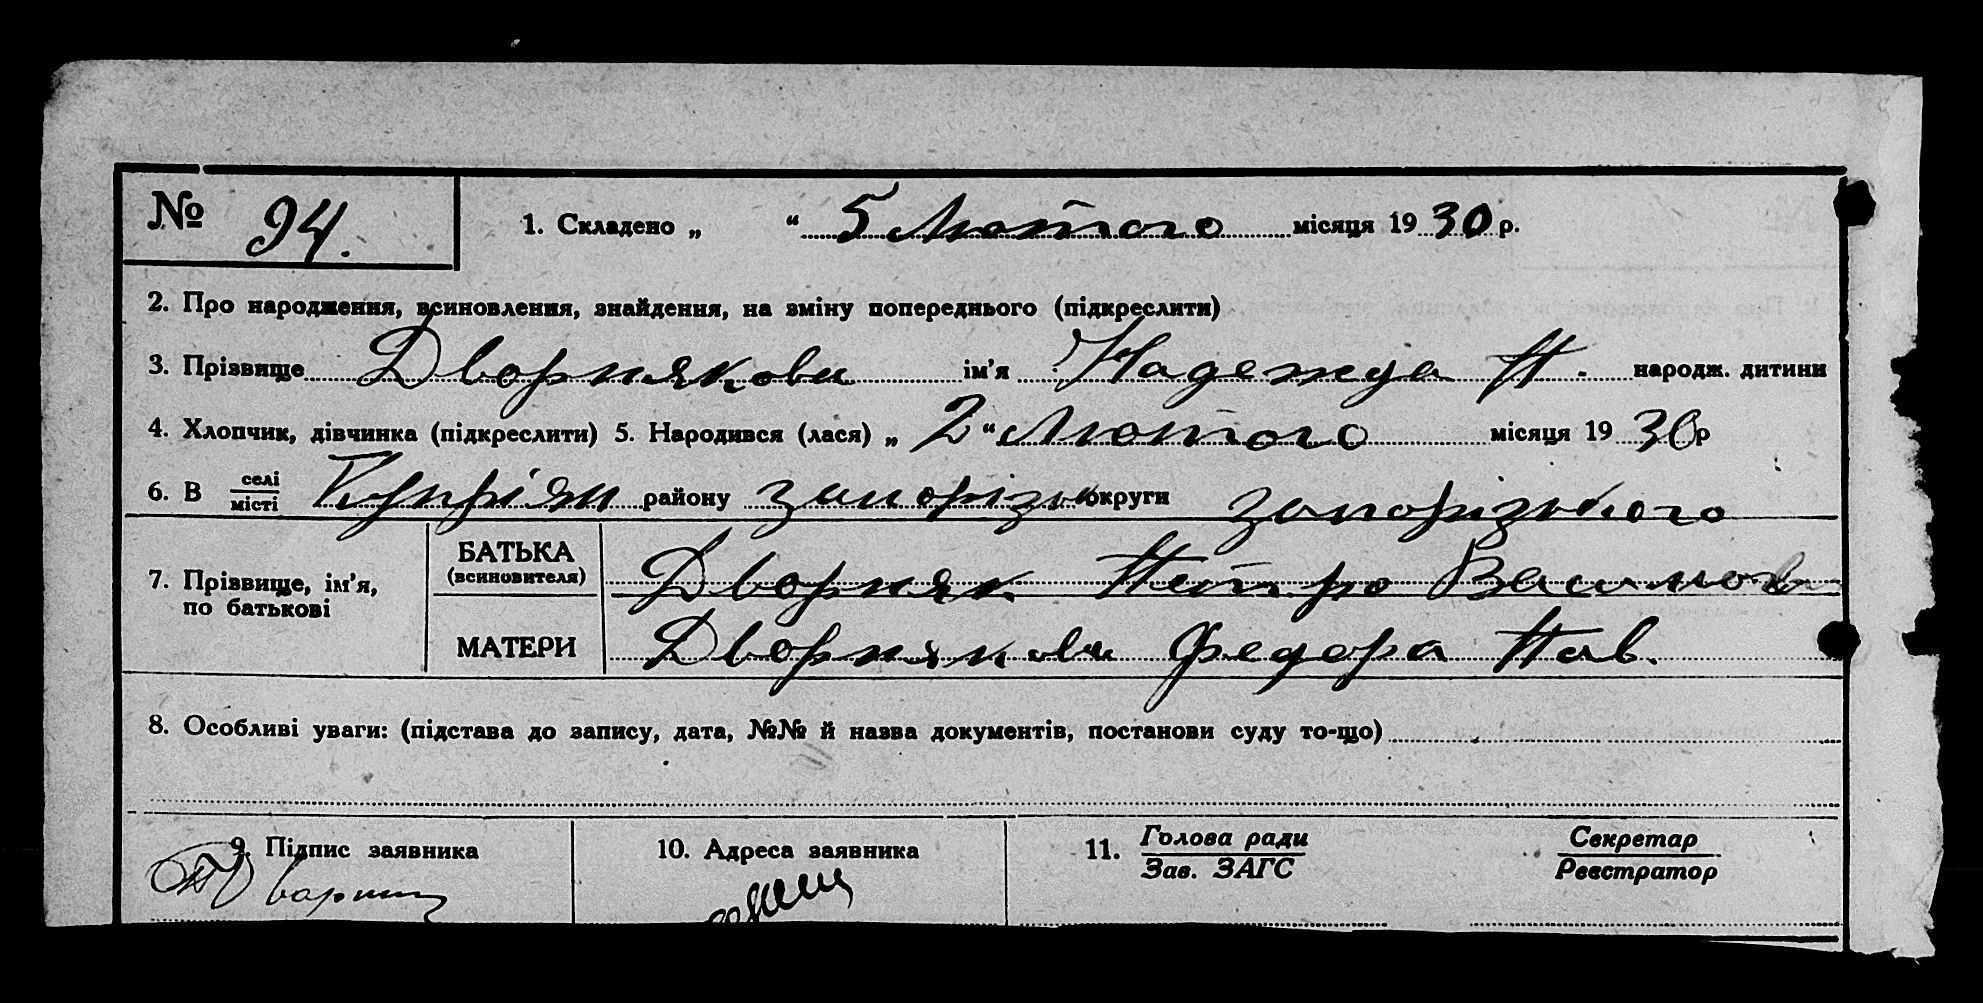 № 94. 1. Складено „ “ 5 Лютого місяця 1930 р.
2. Про народження, всиновлення, знайдення, на зміну попереднього (підкреслити)
3. Прізвище Дворнякова ім’я Надежда П. народж. дитини
4. Хлопчик, дівчинка (підкреслити) 5. Народився (лася) „ 2 “ Лютого місяця 1930 р
6. В селі
місті Купріян району запорізьк округи запорізького
7. Прізвище, ім’я,
по батькові
БАТЬКА
(всиновителя) Дворняк Петро Василов
МАТЕРИ Дворнякова Федора Пав.
8. Особливі уваги: (підстава до запису, дата, №№ й назва документів, постанови суду то-що)
9. Підпис заявника 10. Адреса заявника 11. Голова ради Секретар
Зав. ЗАГС Реєстратор